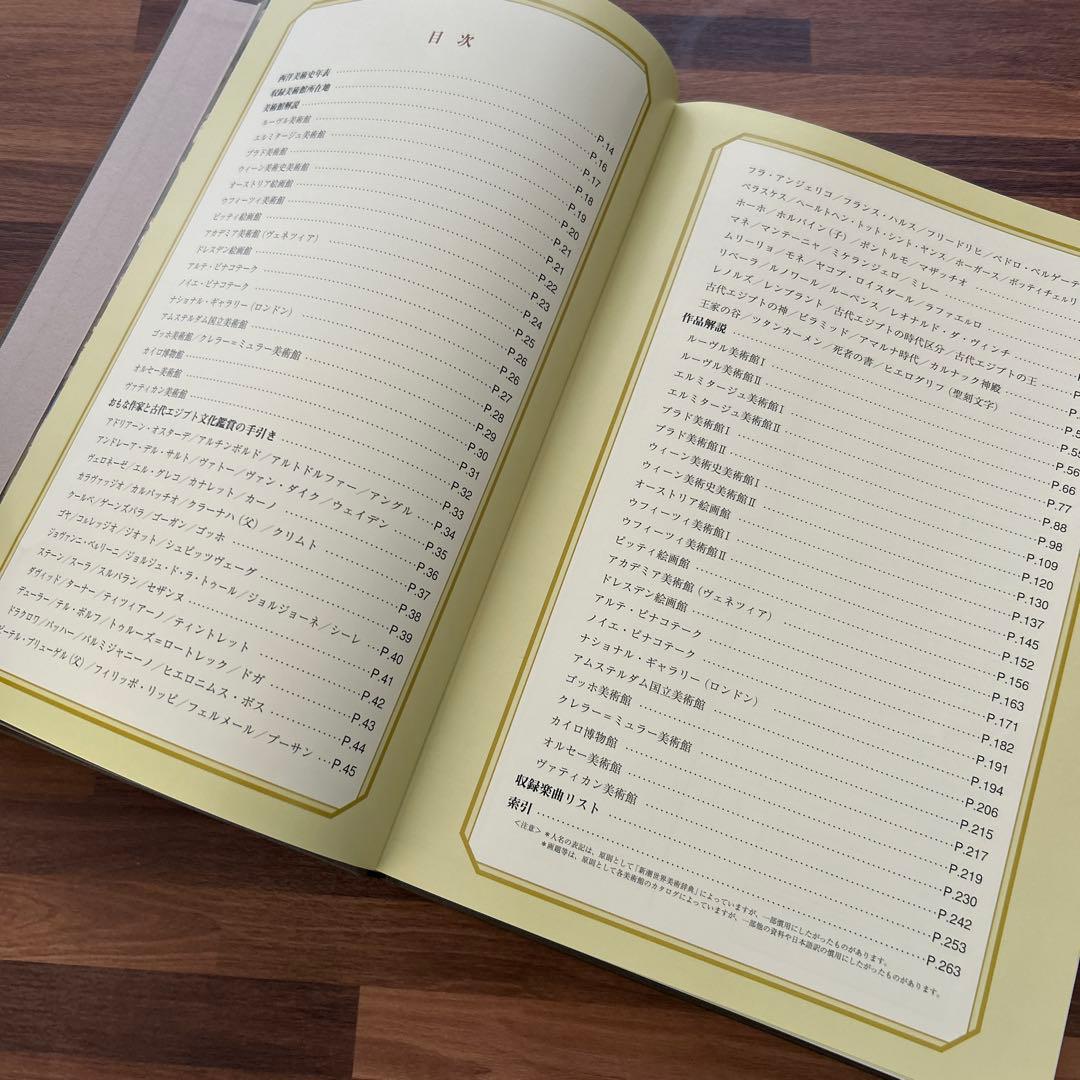 目次
西洋美術史年表 P.14
収録美術館所在地 P.16
美術館解説 P.17
ルーヴル美術館 P.18
エルミタージュ美術館 P.19
プラド美術館 P.20
ウィーン美術史美術館 P.21
オーストリア絵画館 P.21
ウフィーツィ美術館 P.22
ピッティ絵画館 P.23
アカデミア美術館（ヴェネツィア） P.24
ドレスデン絵画館 P.25
アルテ・ピナコテーク P.26
ノイエ・ピナコテーク P.26
ナショナル・ギャラリー（ロンドン） P.27
アムステルダム国立美術館 P.28
ゴッホ美術館／クレラー＝ミュラー美術館 P.29
カイロ博物館 P.30
オルセー美術館 P.31
ヴァティカン美術館 P.32
おもな作家と古代エジプト文化鑑賞の手引き P.33
アドリアーン・オスターデ／アルチンボルド／アルトドルファー／アングル P.34
アンドレーア・デル・サルト／ヴァトー／ヴァン・ダイク／ウェイデン P.35
ヴェロネーゼ／エル・グレコ／カナレット／カーノ P.36
カラヴァッジオ／カルパッチオ／クラーナハ（父）／クリムト P.37
クールベ／ゲーンズバラ／ゴーガン／ゴッホ P.38
ゴヤ／コルレッジオ／ジオット／シュピッツヴェーグ P.39
ジョヴァンニ・ベルリーニ／ジョルジュ・ド・ラ・トゥール／ジョルジョーネ／シーレ P.40
ステーン／スーラ／スルバラン／セザンヌ P.41
ダヴィッド／ターナー／ティツィアーノ／ティントレット P.42
デューラー／テル・ボルフ／トゥルーズ＝ロートレック／ドガ P.43
ドラクロワ／バッハー／パルミジャニーノ／ヒエロニムス・ボス P.44
ピーテル・ブリューゲル（父）／フィリッポ・リッピ／フェルメール／プーサン P.45
フラ・アンジェリコ／フランス・ハルス／フリードリヒ／ペドロ・ベルゲーテ
ベラスケス／ヘールトヘン・トット・シント・ヤンス／ホーガース／ボッティチェルリ
ホーホ／ホルバイン（子）／ポントルモ／マザッチオ
マネ／マンテーニャ／ミケランジェロ／ミレー
ムリーリョ／モネ／ヤコブ・ロイスダール／ラファエルロ
リベーラ／ルノワール／ルーベンス／レオナルド・ダ・ヴィンチ
レノルズ／レンブラント／古代エジプトの時代区分／古代エジプトの王
古代エジプトの神／ピラミッド／アマルナ時代／カルナック神殿
王家の谷／ツタンカーメン／死者の書／ヒエログリフ（聖刻文字）
作品解説 P.55
ルーヴル美術館Ⅰ P.56
ルーヴル美術館Ⅱ P.66
エルミタージュ美術館Ⅰ P.77
エルミタージュ美術館Ⅱ P.88
プラド美術館Ⅰ P.98
プラド美術館Ⅱ P.109
ウィーン美術史美術館Ⅰ P.120
ウィーン美術史美術館Ⅱ P.130
オーストリア絵画館 P.137
ウフィーツィ美術館Ⅰ P.145
ウフィーツィ美術館Ⅱ P.152
ピッティ絵画館 P.156
アカデミア美術館（ヴェネツィア） P.163
ドレスデン絵画館 P.171
アルテ・ピナコテーク P.182
ノイエ・ピナコテーク P.191
ナショナル・ギャラリー（ロンドン） P.194
アムステルダム国立美術館 P.206
ゴッホ美術館 P.215
クレラー＝ミュラー美術館 P.217
カイロ博物館 P.219
オルセー美術館 P.230
ヴァティカン美術館 P.242
収録楽曲リスト P.253
索引 P.263
＜注意＞＊人名の表記は、原則として「新潮世界美術辞典」によっていますが、一部慣用にしたがったものがあります。
＊画題等は、原則として各美術館のカタログによっていますが、一部他の資料や日本語訳の慣用にしたがったものがあります。